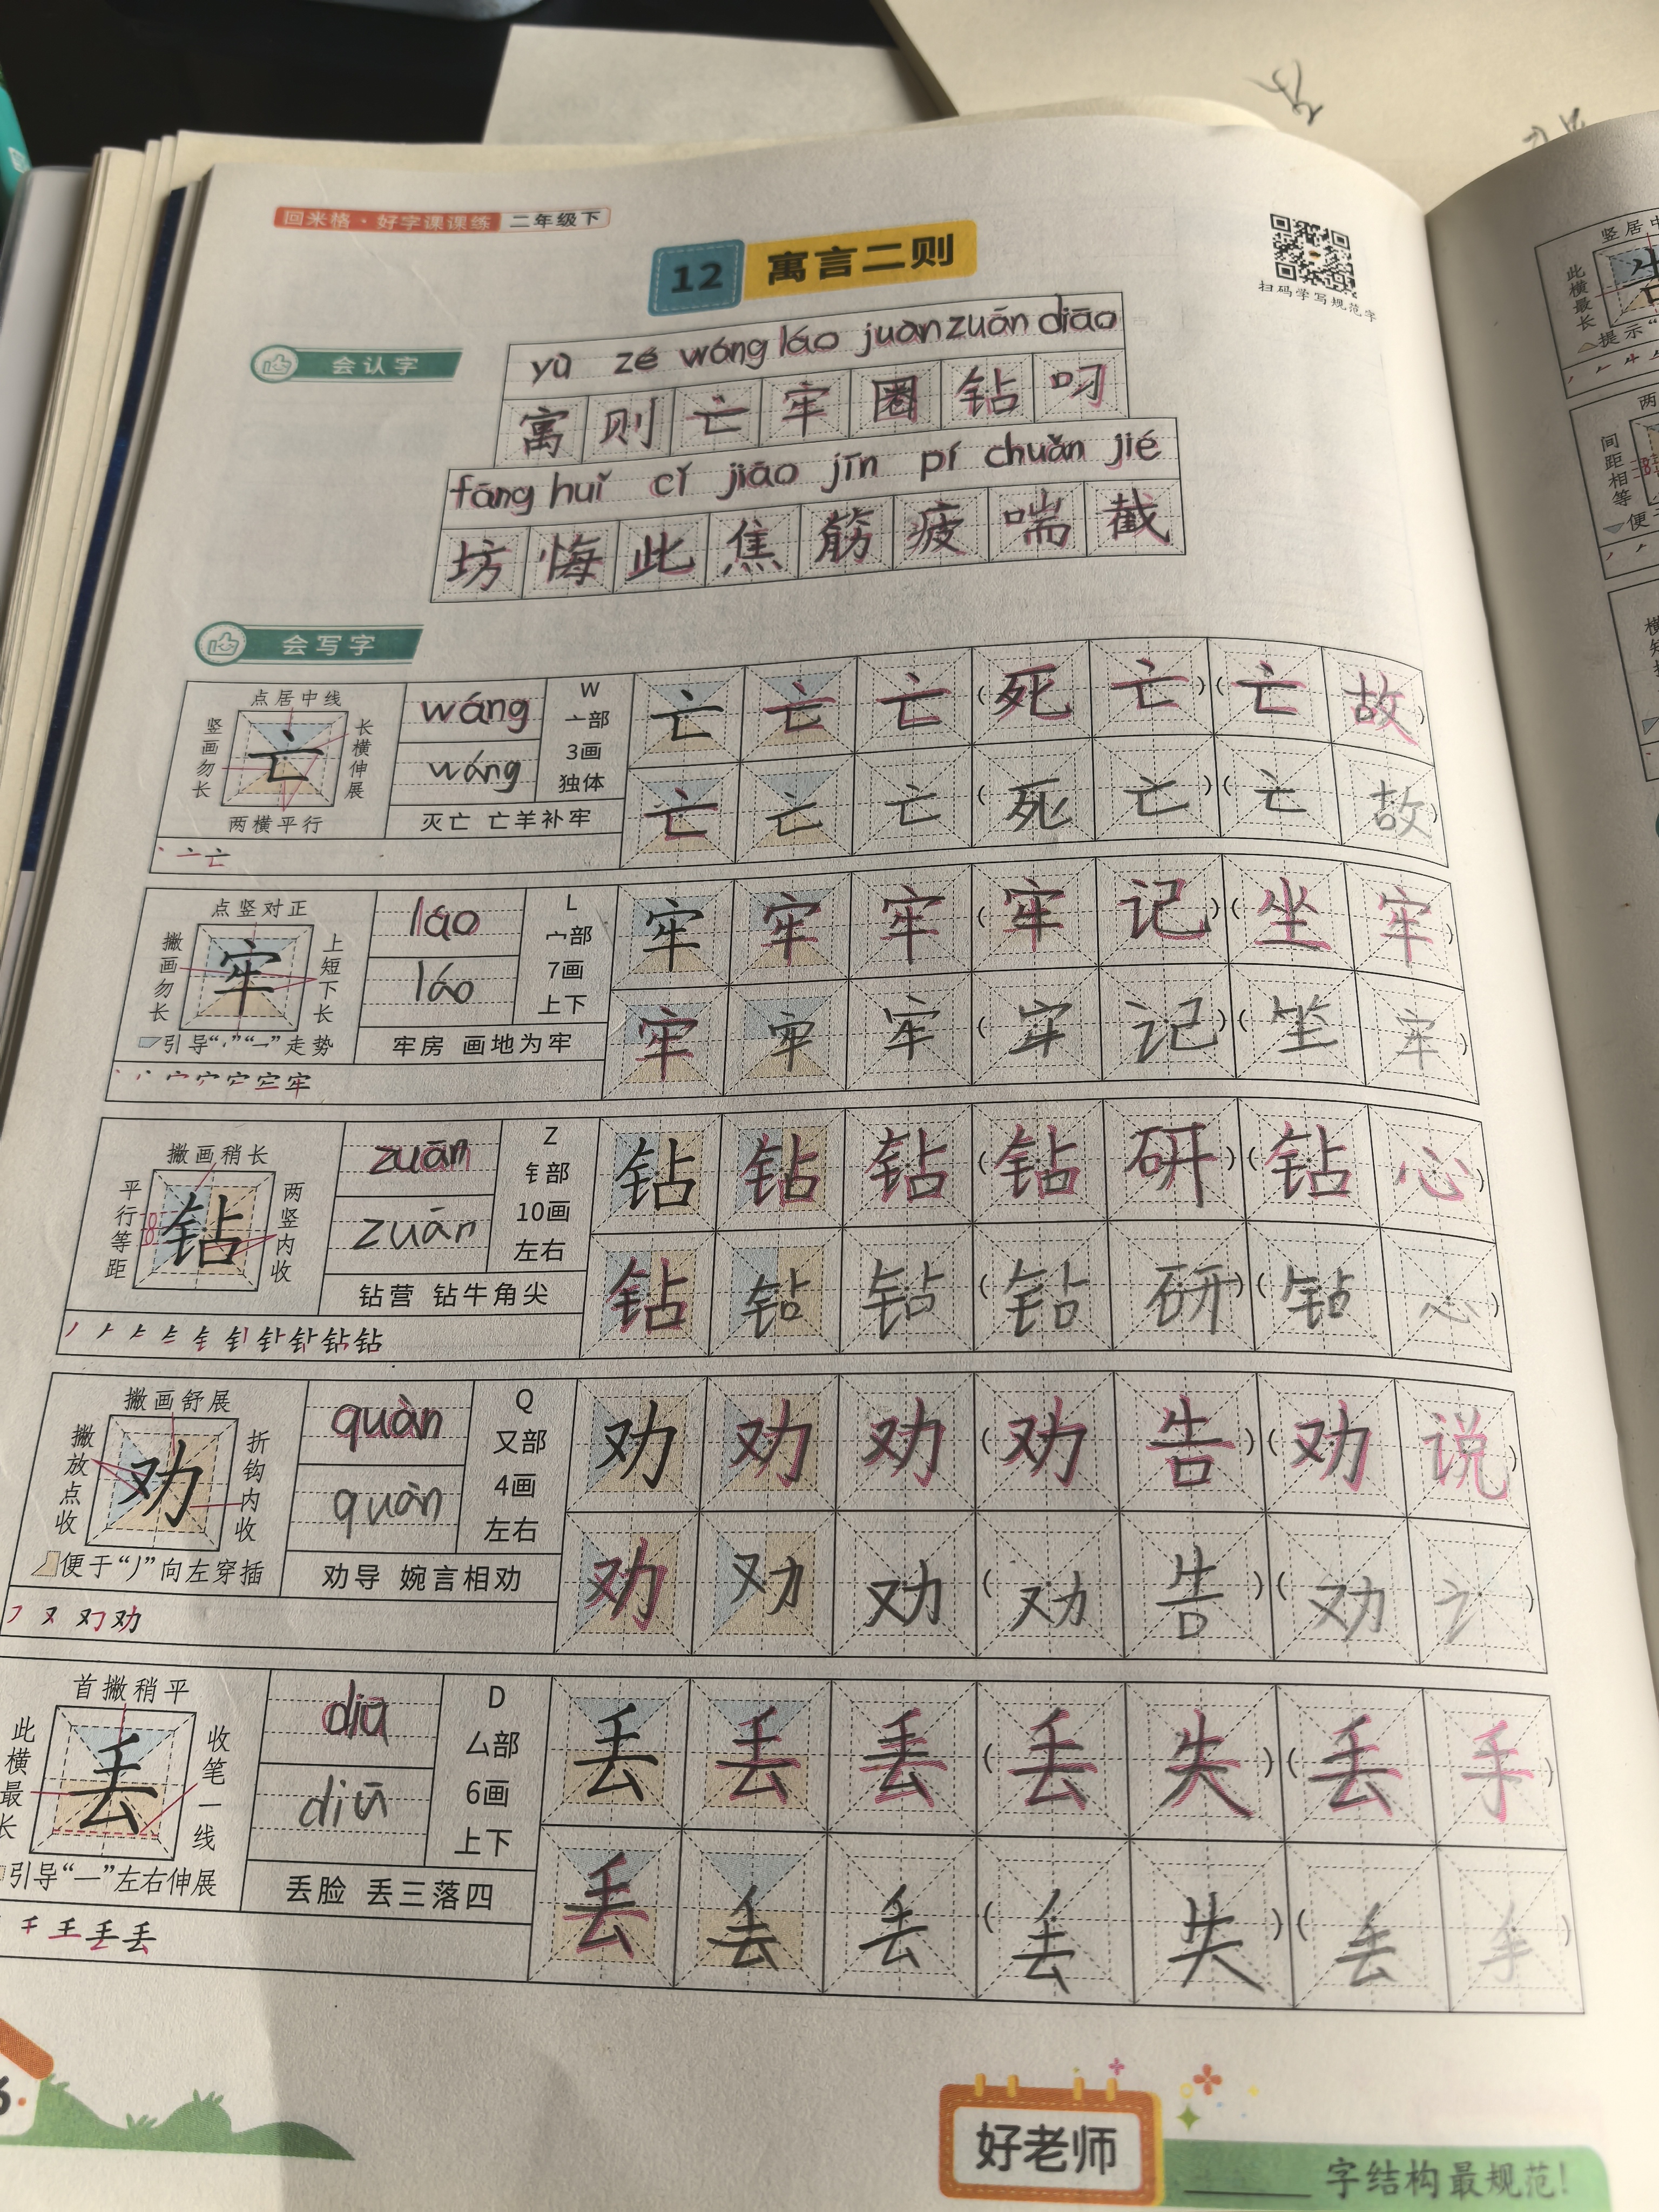 回米格·好字课课练 二年级下
12 寓言二则
扫码学写规范字
会认字
yù zé wáng láo juàn zuān diāo
寓 则 亡 牢 圈 钻 叼
fāng huǐ cǐ jiāo jīn pí chuǎn jié
坊 悔 此 焦 筋 疲 喘 截
会写字
点居中线
竖画勿长
亡
长横伸展
两横平行
wáng
wáng
W
亠部
3画
独体
灭亡 亡羊补牢
亡 亡 亡 (死 亡) (亡 故)
亡 亡 亡 (死 亡) (亡 故)
点竖对正
撇画勿长
牢
上短下长
引导“丶”“一”走势
láo
láo
L
宀部
7画
上下
牢房 画地为牢
牢 牢 牢 (牢 记) (坐 牢)
牢 牢 牢 (牢 记) (坐 牢)
撇画稍长
平行等距
钻
两竖内收
zuān
zuān
Z
钅部
10画
左右
钻营 钻牛角尖
钻 钻 钻 (钻 研) (钻 心)
钻 钻 钻 (钻 研) (钻 心)
撇画舒展
撇放点收
劝
折钩内收
便于“丿”向左穿插
quàn
quàn
Q
又部
4画
左右
劝导 婉言相劝
劝 劝 劝 (劝 告) (劝 说)
劝 劝 劝 (劝 告) (劝 讠)
首撇稍平
此横最长
丢
收笔一线
引导“一”左右伸展
diū
diū
D
厶部
6画
上下
丢脸 丢三落四
丢 丢 丢 (丢 失) (丢 手)
丢 丢 丢 (丢 失) (丢 手)
好老师
字结构最规范!
竖居中
此横最长
提示“
间距相等
便